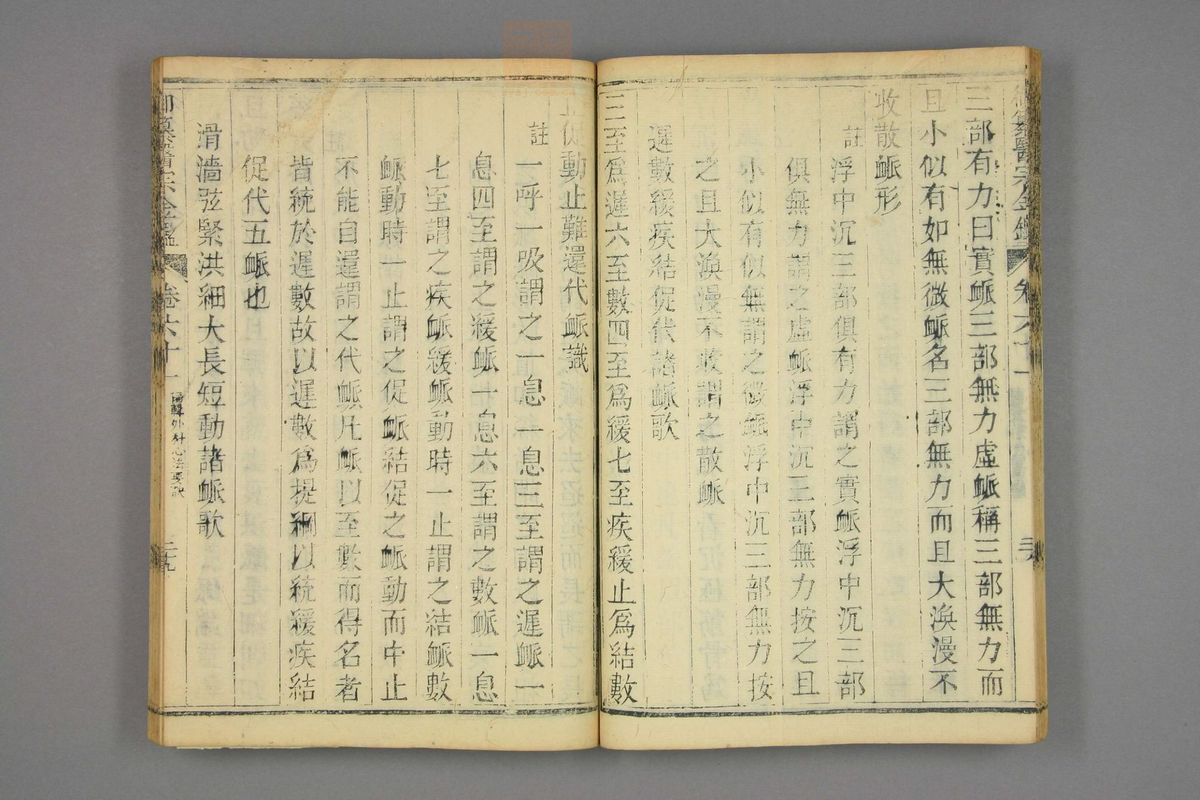 三部有力曰實䘑三部無力虛䘑稱三部無力而
且小似有如無微䘑名三部無力而且大渙漫不
收散䘑形
註 浮中沉三部俱有力謂之實䘑浮中沉三部
俱無力謂之虛䘑浮中沉三部無力按之且
小似有似無謂之微䘑浮中沉三部無力按
之且大渙漫不收謂之散䘑
遲數緩疾結促代諸䘑歌
三至爲遲六至數四至爲緩七至疾緩止爲結數
止促動止難還代䘑識
註 一呼一吸謂之一息一息三至謂之遲䘑一
息四至謂之緩䘑一息六至謂之數䘑一息
七至謂之疾䘑緩䘑動時一止謂之結䘑數
䘑動時一止謂之促䘑結促之䘑動而中止
不能自還謂之代䘑凡䘑以至數而得名者
皆統於遲數故以遲數爲提綱以統緩疾結
促代五䘑也
滑濇弦緊洪細大長短動諸䘑歌
御纂醫宗金鑑 卷六十一 編輯外科心法要訣 二九